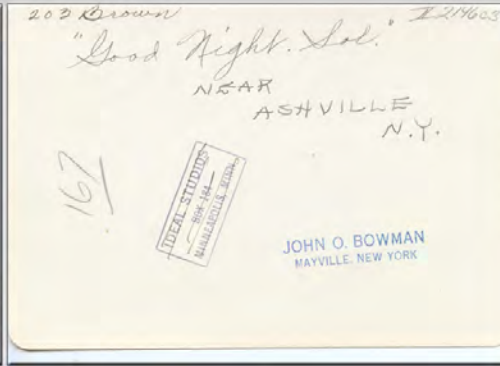 203 Brown
"Good Night. Sol."
NEAR
ASHVILLE
N.Y.
167
IDEAL STUDIOS
BOX 184
MINNEAPOLIS, MINN.
JOHN O. BOWMAN
MAYVILLE, NEW YORK